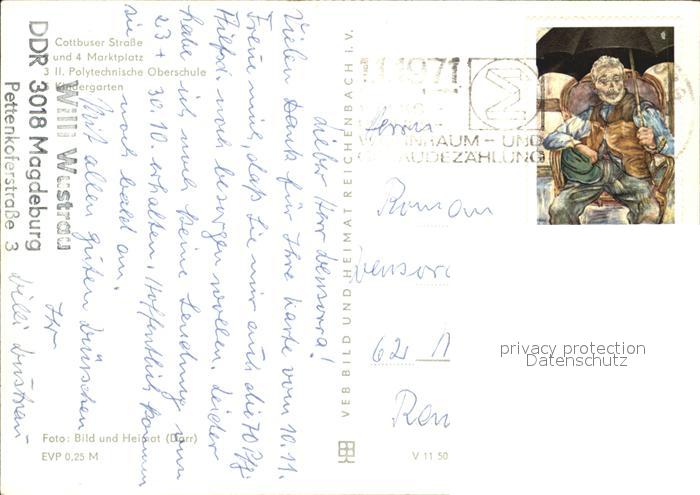 Cottbuser Straße
und 4 Marktplatz
3 II. Polytechnische Oberschule
5 Kindergarten
Willi Wustrau
DDR 3018 Magdeburg
Pettenkoferstraße 3
Lieber Herr Densora!
Vielen Dank für Ihre Karte vom 10.11.
Freue mich, daß Sie mir auch die 70 Pfg.
noch besorgen wollen. Leider
habe ich noch keine Sendung vom
23 + 30.10. erhalten. Hoffentlich kommen
sie noch bald an.
Mit allen guten Wünschen
Ihr
Willi Wustrau
Foto: Bild und Heimat (Darr)
EVP 0,25 M
VEB BILD UND HEIMAT REICHENBACH I. V.
V 11 50
1.1.1971
WOHNRAUM- UND
GEBÄUDEZÄHLUNG
Herrn
Roman
Densora
62
privacy protection
Datenschutz